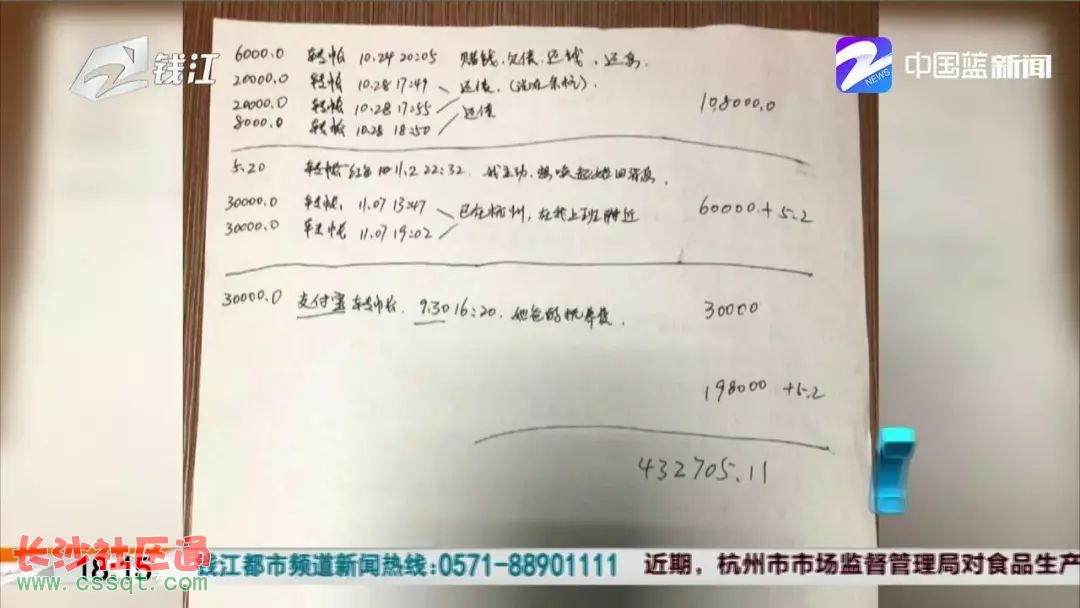 钱江
中国蓝新闻
NEWS
6000.0 转帐 10.24 20:05 赌钱.欠债.还钱
20000.0 转帐 10.28 17:49 还债.
20000.0 转帐 10.28 17:55 还债
8000.0 转帐 10.28 18:50
108000.0
5.20 红包 11.2 22:32. 我主动.
30000.0 转帐. 11.07 13:47 已在杭州, 在我上班附近
30000.0 转帐 11.07 19:02
60000.+5.2
30000.0 支付宝转帐. 9.30 16:20.
30000
198000 +5.2
432705.11
长沙社区通
www.cssqt.com
18:15
钱江都市频道新闻热线:0571-88901111 近期，杭州市市场监督管理局对食品生产